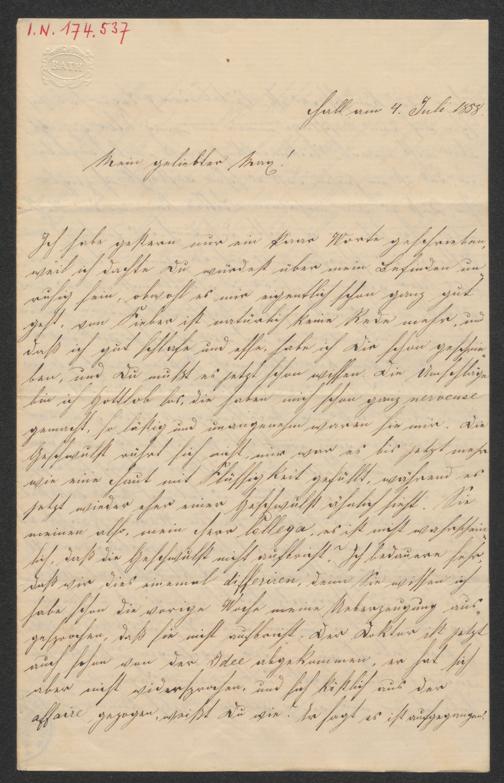 I.N. 174.537
BATH
Hall am 4. Juli 1858
Mein geliebter Max!
Ich habe gestern nur ein Paar Worte geschrieben,
weil ich dachte Du würdest über mein Befinden un¬
ruhig sein, obwohl es mir eigentlich schon ganz gut
geht, von Fieber ist natürlich keine Rede mehr, und
daß ich gut schlafe und esse, habe ich Dir schon geschrie¬
ben, und Du mußt es jetzt schon wissen. Die Umschläge
bin ich Gottlob los, die haben mich schon ganz nerveuse
gemacht, so lästig und unangenehm waren sie mir. Die
Geschwulst rührt sich nicht, nur war es bis jetzt mehr
wie eine Haut mit Flüssigkeit gefüllt, während es
jetzt wieder eher einer Geschwulst ähnlich sieht. Sie
meinen also, mein Herr Collega, es ist nicht wahrschein
lich, daß die Geschwulst nicht aufbricht? Ich bedauere sehr,
daß wir dies einemal differiren, denn Sie wissen ich
habe schon die vorige Woche meine Ueberzeugung aus¬
gesprochen, daß sie nicht aufbricht. Der Doktor ist jetzt
auch schon von der Idee abgekommen, er hat sich
aber nicht widersprochen, und sich köstlich aus der
affaire gezogen, weißt Du wie? Er sagt es ist aufgegangen!